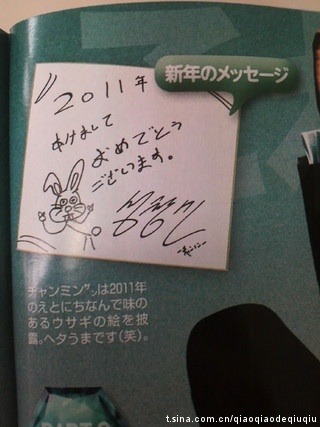 新年のメッセージ
2011年
あけまして
おめでとう
ございます。
チャンミンさんは2011年
のえとにちなんで味の
あるウサギの絵を披
露。ヘタうまです（笑）。
t.sina.com.cn/qiaoqiaodeqiuqiu